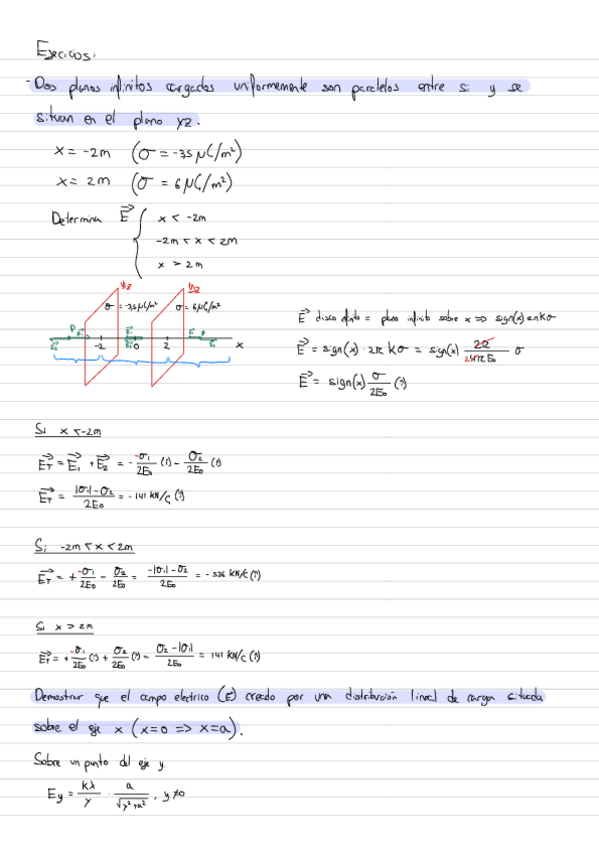 Ejercicios.
- Dos planos infinitos cargados uniformemente son paralelos entre si y se
situan en el plano yz.
x = -2m (σ = -3,5 μC/m²)
x = 2m (σ = 6 μC/m²)
Determina E⃗ { x < -2m
-2m < x < 2m
x > 2m
yz yz
σ = -3,5 μC/m² σ = 6 μC/m²
-2 0 2 x
E⃗ disco infinito = plano infinito sobre x => sign(x) 2πkσ
E⃗ = sign(x) · 2π kσ = sign(x) 2π/4πE₀ σ
E⃗ = sign(x) σ/2E₀ (i)
Si x < -2m
E_T⃗ = E₁⃗ + E₂⃗ = - -σ₁/2E₀ (i) - σ₂/2E₀ (i)
E_T⃗ = |σ₁| - σ₂/2E₀ = -141 kN/C (i)
Si -2m < x < 2m
E_T⃗ = + -σ₁/2E₀ - σ₂/2E₀ = -|σ₁| - σ₂/2E₀ = -536 kN/C (i)
Si x > 2m
E_T⃗ = + -σ₁/2E₀ (i) + σ₂/2E₀ (i) = σ₂ - |σ₁|/2E₀ = 141 kN/C (i)
Demostrar que el campo electrico (E) creado por una distribución lineal de carga situada
sobre el eje x (x=0 => x=a).
Sobre un punto del eje y
Ey = kλ/y · a/√(y²+a²) , y≠0